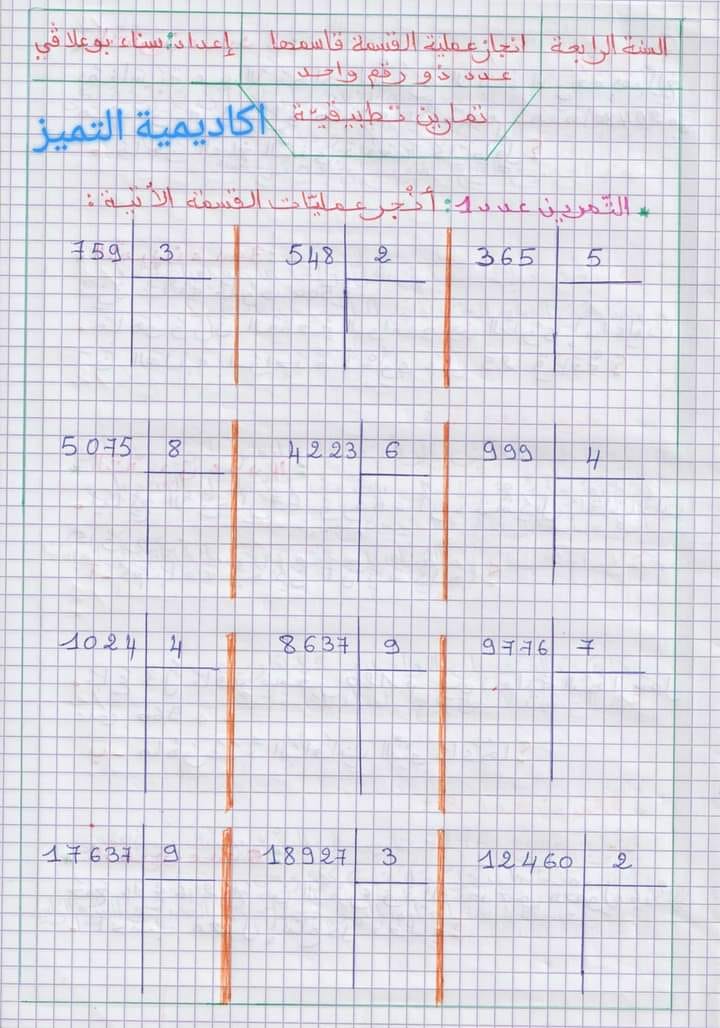 السنة الرابعة
انجاز عملية القسمة قاسمها
عدد ذو رقم واحد
إعداد: سناء بوعلاقي
تمارين تطبيقيّة
أكاديمية التميز
* التمرين عدد 1: أنْجز عمليّات القسمة الآتية:
759 3 548 2 365 5
5075 8 4223 6 999 4
1024 4 8637 9 9776 7
17637 9 18927 3 12460 2